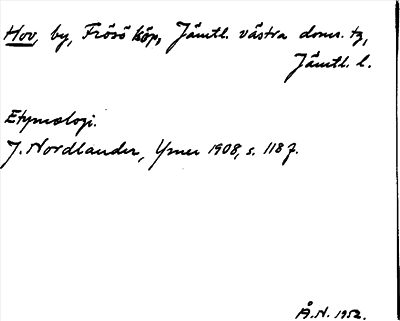 Hov, by, Frösö köp, Jämtl. västra doms. tg,
Jämtl. l.
Etymologi.
J. Nordlander, Ymer 1908, s. 118 f.
Å.N. 1952.